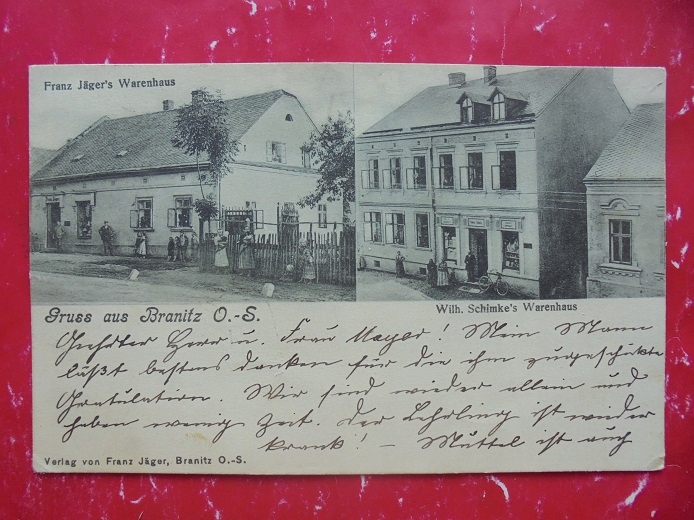 Franz Jäger's Warenhaus
Wilh. Schimke's Warenhaus
Gruss aus Branitz O.-S.
Geehrter Herr u. Frau Mayer! Mein Mann
läßt bestens danken für die ihm zugeschickte
Gratulation. Wir sind wieder allein und
haben wenig Zeit. Der Lehrling ist wieder
krank! – Muttel ist auch
Verlag von Franz Jäger, Branitz O.-S.